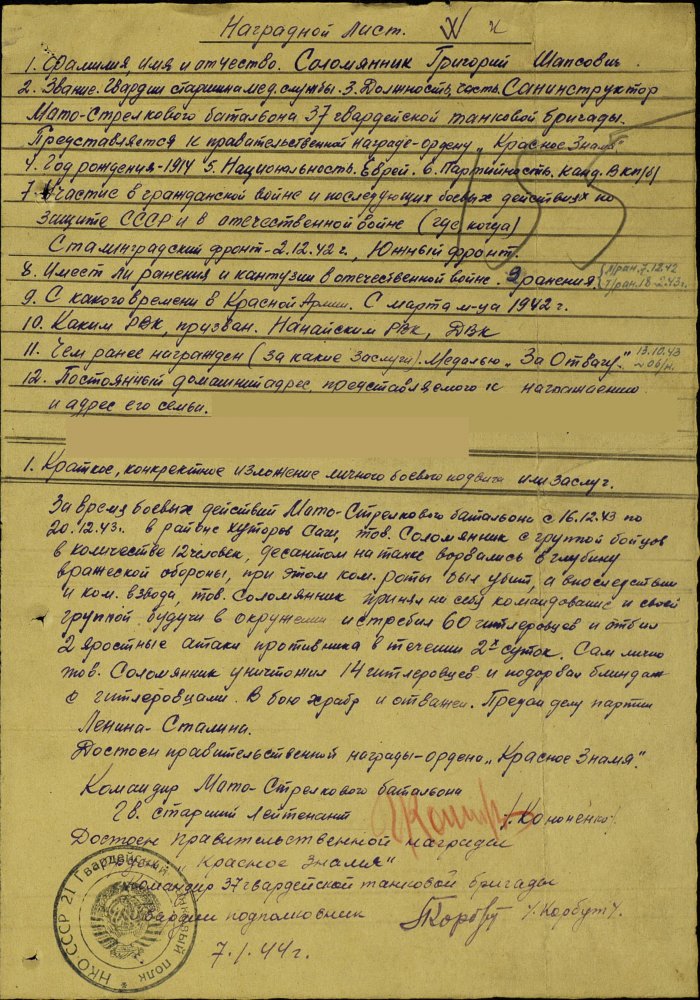 Наградной Лист.
1. Фамилия, имя и отчество. Соломянник Григорий Шапсович.
2. Звание. Гвардии старшина мед. службы. 3. Должность, часть. Санинструктор
Мото-Стрелкового батальона 37 гвардейской танковой бригады.
Представляется к правительственной награде-ордену „Красное Знамя"
4. Год рождения-1914 5. Национальность. Еврей. 6. Партийность. Канд. ВКП/б/
7. Участие в гражданской войне и последующих боевых действиях по
защите СССР и в отечественной войне (где, когда)
Сталинградский фронт-2.12.42 г., Южный фронт.
8. Имеет ли ранения и кантузии в отечественной войне. 2 ранения.
9. С какого времени в Красной Армии. С марта м-ца 1942 г.
10. Каким РВК, призван. Нанайским РВК, ДВК
11. Чем ранее награжден (за какие заслуги). Медалью „За Отвагу". 13.10.43
12. Постоянный домашний адрес, представляемого к награждению
и адрес его семьи.
1. Краткое, конкретное изложение личного боевого подвига или заслуг.
За время боевых действий Мото-Стрелкового батальона с 16.12.43 по
20.12.43г. в районе хуторов Саги, тов. Соломянник с группой бойцов
в количестве 12 человек, десантом на танке ворвались в глубину
вражеской обороны, при этом ком. роты был убит, а впоследствии
и ком. взвода, тов. Соломянник принял на себя командование и своей
группой будучи в окружении истребил 60 гитлеровцев и отбил
2 яростные атаки противника в течении 2х суток. Сам лично
тов. Соломянник уничтожил 14 гитлеровцев и подорвал блиндаж
с гитлеровцами. В бою храбр и отважен. Предан делу партии
Ленина-Сталина.
Достоен правительственной награды-ордена „Красное Знамя".
Командир Мото-Стрелкового батальона
Гв. старший лейтенант /Кононенко/
Достоен правительственной награды
ордена „Красное Знамя"
Командир 37 гвардейской танковой бригады
Гвардии подполковник /Корбут/.
7.1.44г.
НКО·СССР 21 Гвардейский танковый полк